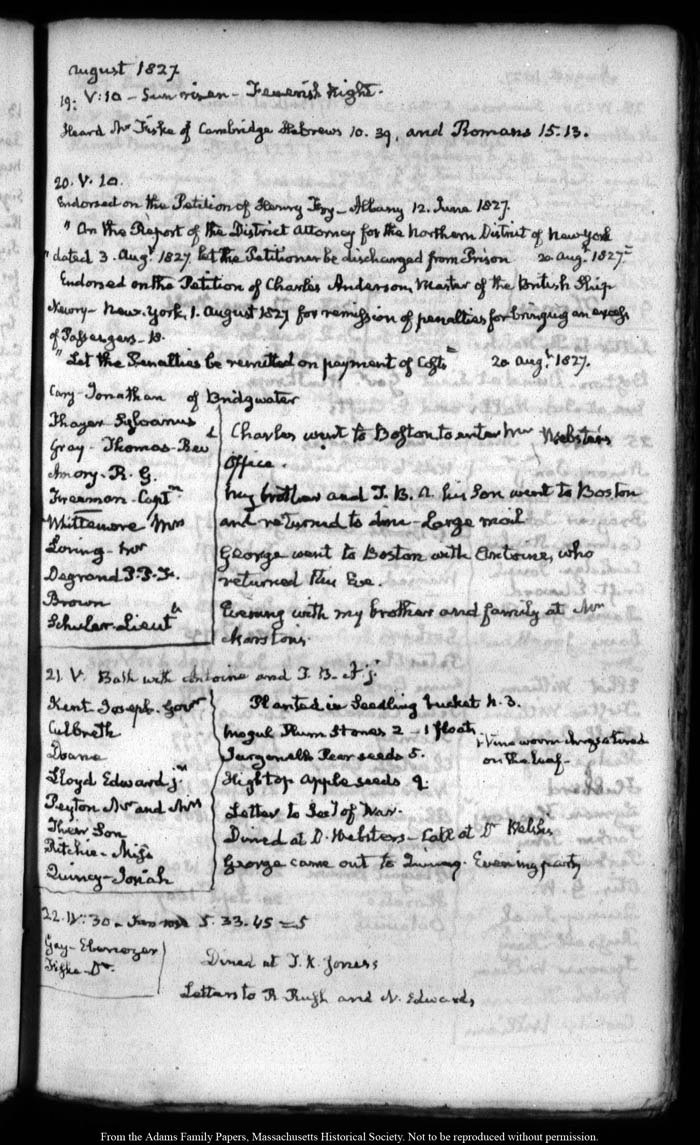 August 1827
19: V:10 - Sun risen - Feverish Night.
Heard Mr Fiske of Cambridge Hebrews 10.39, and Romans 15.13.
20. V. 10.
Endorsed on the Petition of Henry - Albany 12. June 1827.
" On the Report of the District Attorney for the Northern District of New York
" dated 3. Augt 1827 let the Petitioner be discharged from Prison 20 Augt 1827."
Endorsed on the Petition of Charles Anderson, Master of the British Ship
Newry - New York, 1. August 1827 for remission of penalties for bringing an excess
of Passengers - 13.
" Let the Penalties be remitted on payment of Costs" 20 Augt 1827.
Cary - Jonathan of Bridgwater
Thayer Sylvanus
Gray - Thomas - Rev
Amory - R. G.
Freeman - Captn
Whittemore Mrs
Loring - Mr
Degrand P. P. F.
Brown
Schuler - Lieutt
Charles went to Boston to enter Mr Webster's
Office.
My brother and T. B. A. his Son went to Boston
and returned to dine - Large mail
George went to Boston with Antoine, who
returned this Eve.
Evening with my brother and family at Mrs
Marston's.
21. V. Bath with Antoine and T. B. A. jr
Kent Joseph. Govr
Culbreth
Doane
Lloyd Edward jr
Peyton Mr and Mrs
Their Son
Ritchie - Miss
Quincy - Josiah
Planted in Seedling bucket N. 3.
Mogul Plum Stones 2 - 1 floats
Jargonelle Pear seeds 5.
Hightop Apple seeds 9.
Vine worm chrysalized
on the leaf -
Letter to Secy of War.
Dined at D. Webster's - Call at Dr Welsh's
George came out to Quincy. Evening party
22. IV: 30. Sun rose 5.33.45 = 5
Gay - Ebenezer
Fiske - Dr.
Dined at T. K. Jones's
Letters to R. Rush and N. Edwards
From the Adams Family Papers, Massachusetts Historical Society. Not to be reproduced without permission.